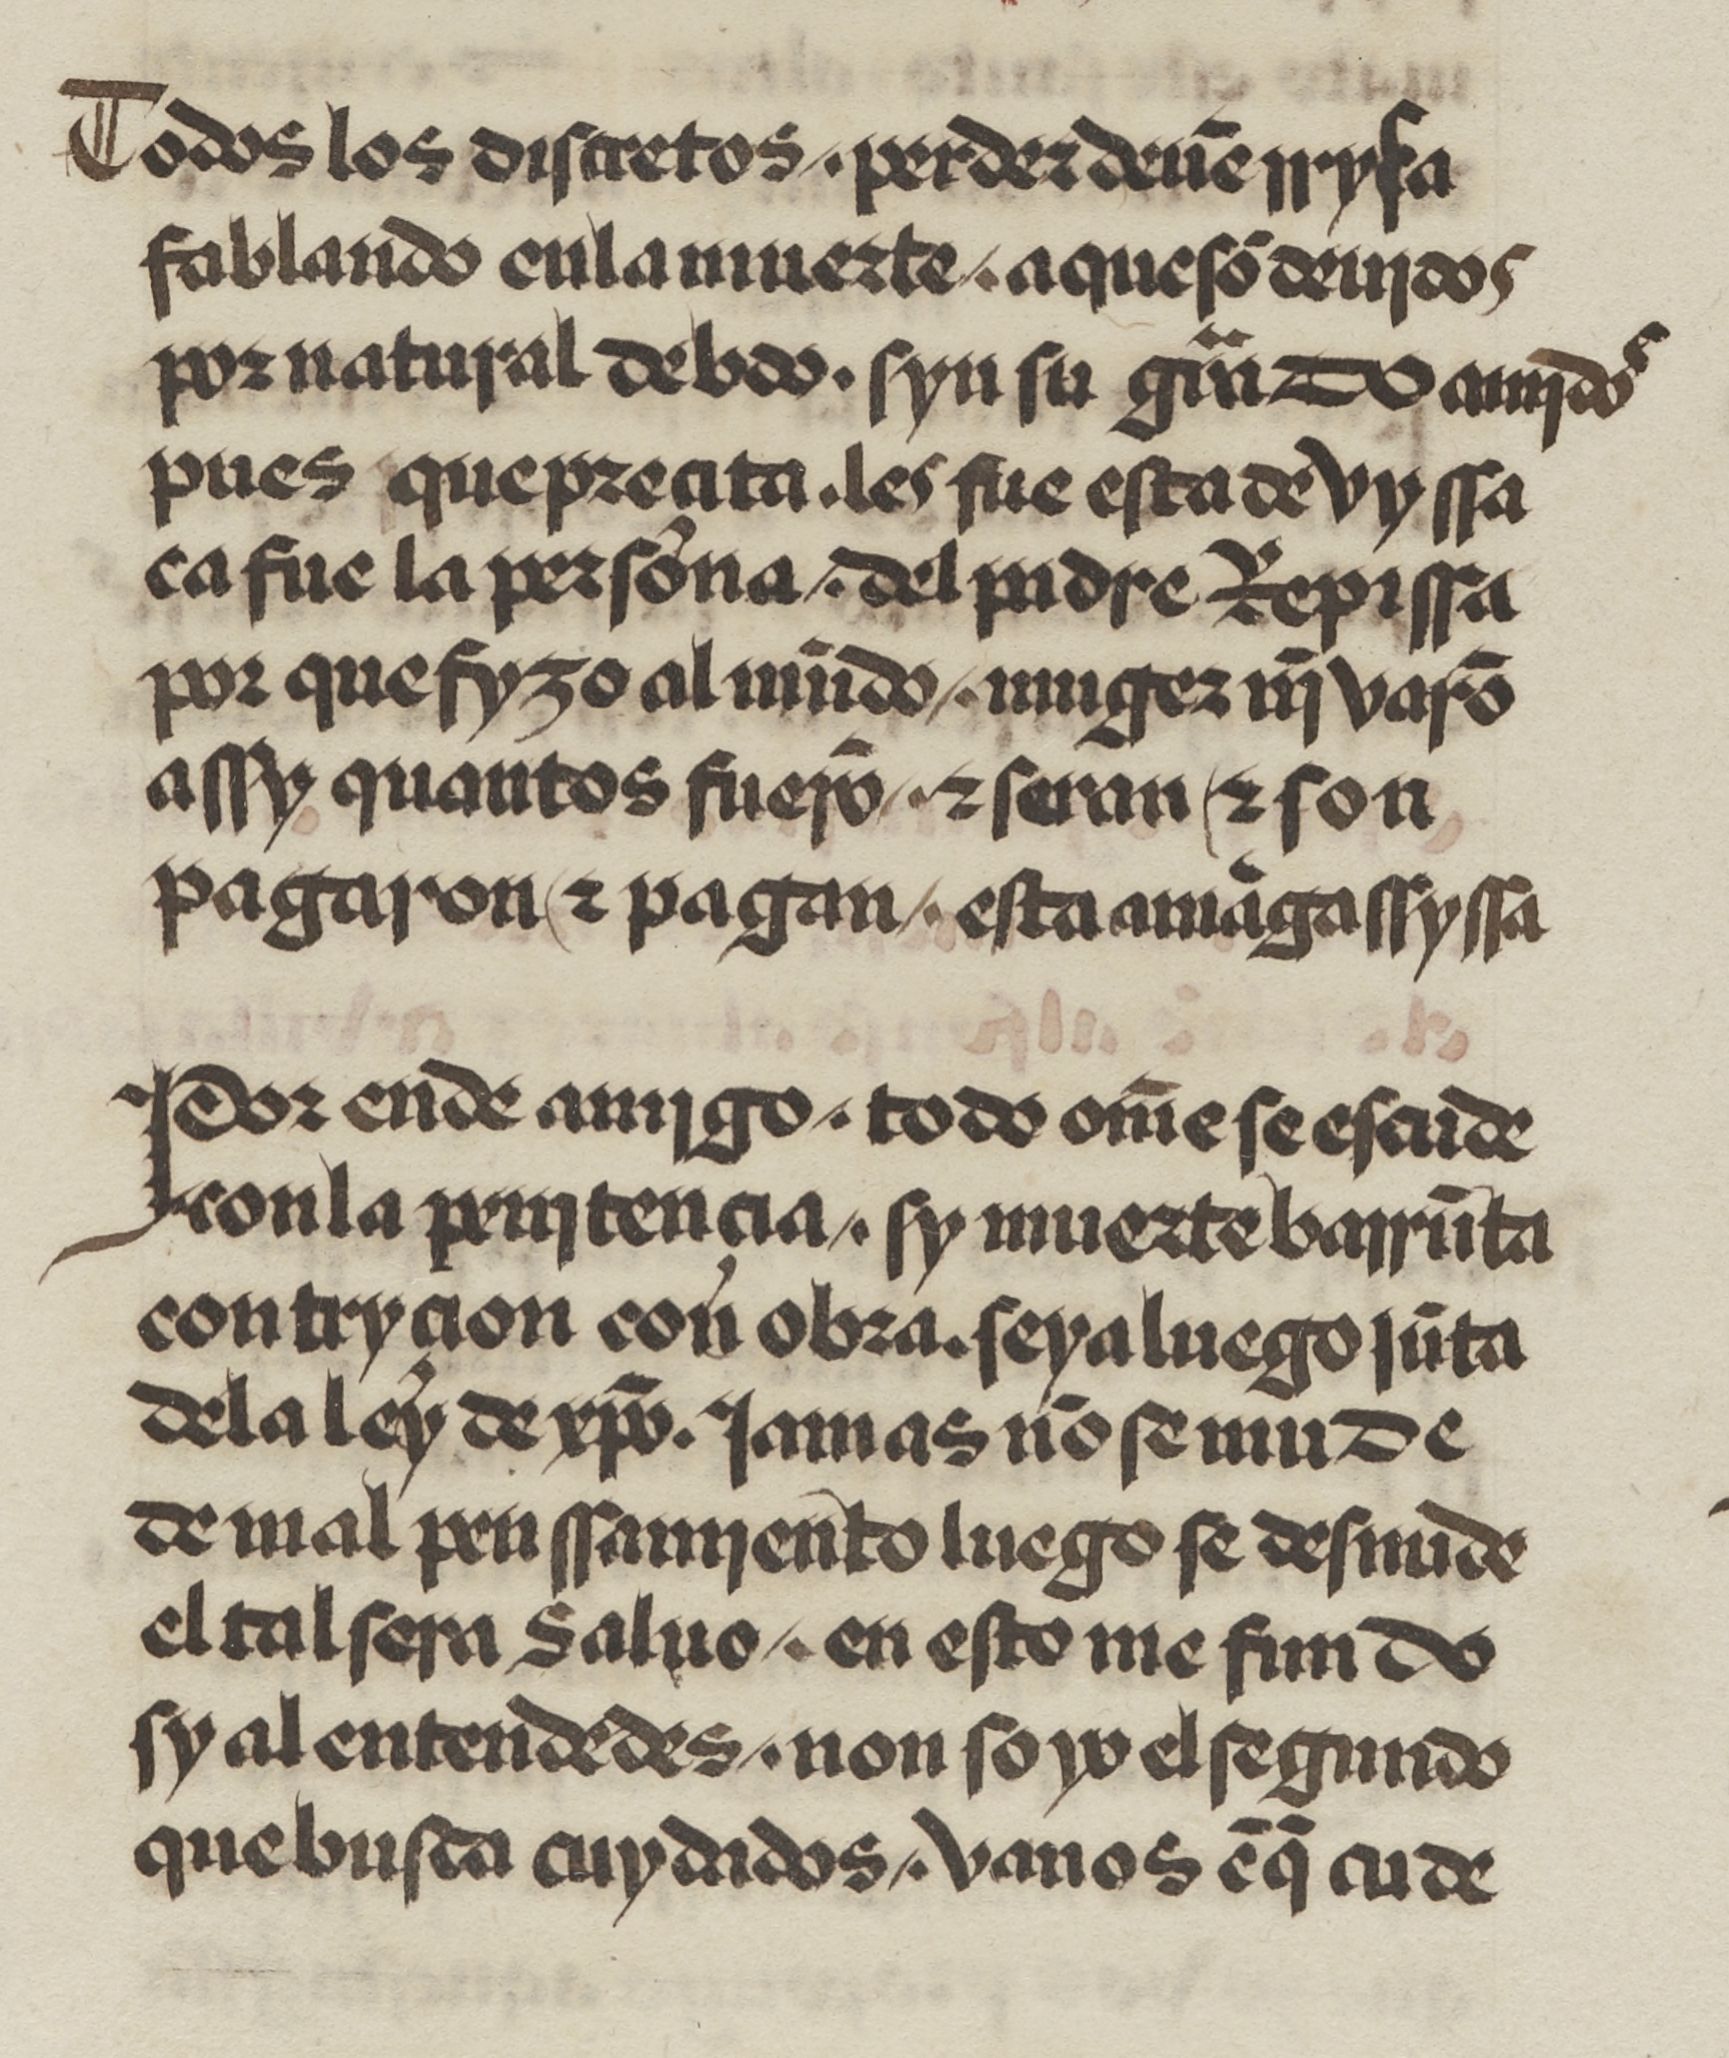 Todos los discretos ⁄· perder deuẽ rrysa
fablando en la muerte ⁄· a que sõ deujdos
por natural debdo · syn su grãdo amjdos
pues que precita · les fue esta devyssa
ca fue la persona ⁄· del padre Repissa
por que fyzo al mũdo ⁄· muger nj̃ varõ
assy quantos fuerõ ⁄· ⁊ seran ⁊ son
pagaron ⁊ pagan ⁄· esta amãga ssyssa
Por ende amjgo ⁄· todo om̃e se escude
con la penjtencia ⁄· sy muerte barrũta
contrycion con obra · seya luego jũta
de la ley de xp̃o · Jamas nõ se mude
de mal penssamjento luego se desnude
el tal sera saluo ⁄· en esto me fundo
sy al entendedes ⁄· non so yo el segundo
que busca cuydados ⁄· vanos ẽ q̃ cude